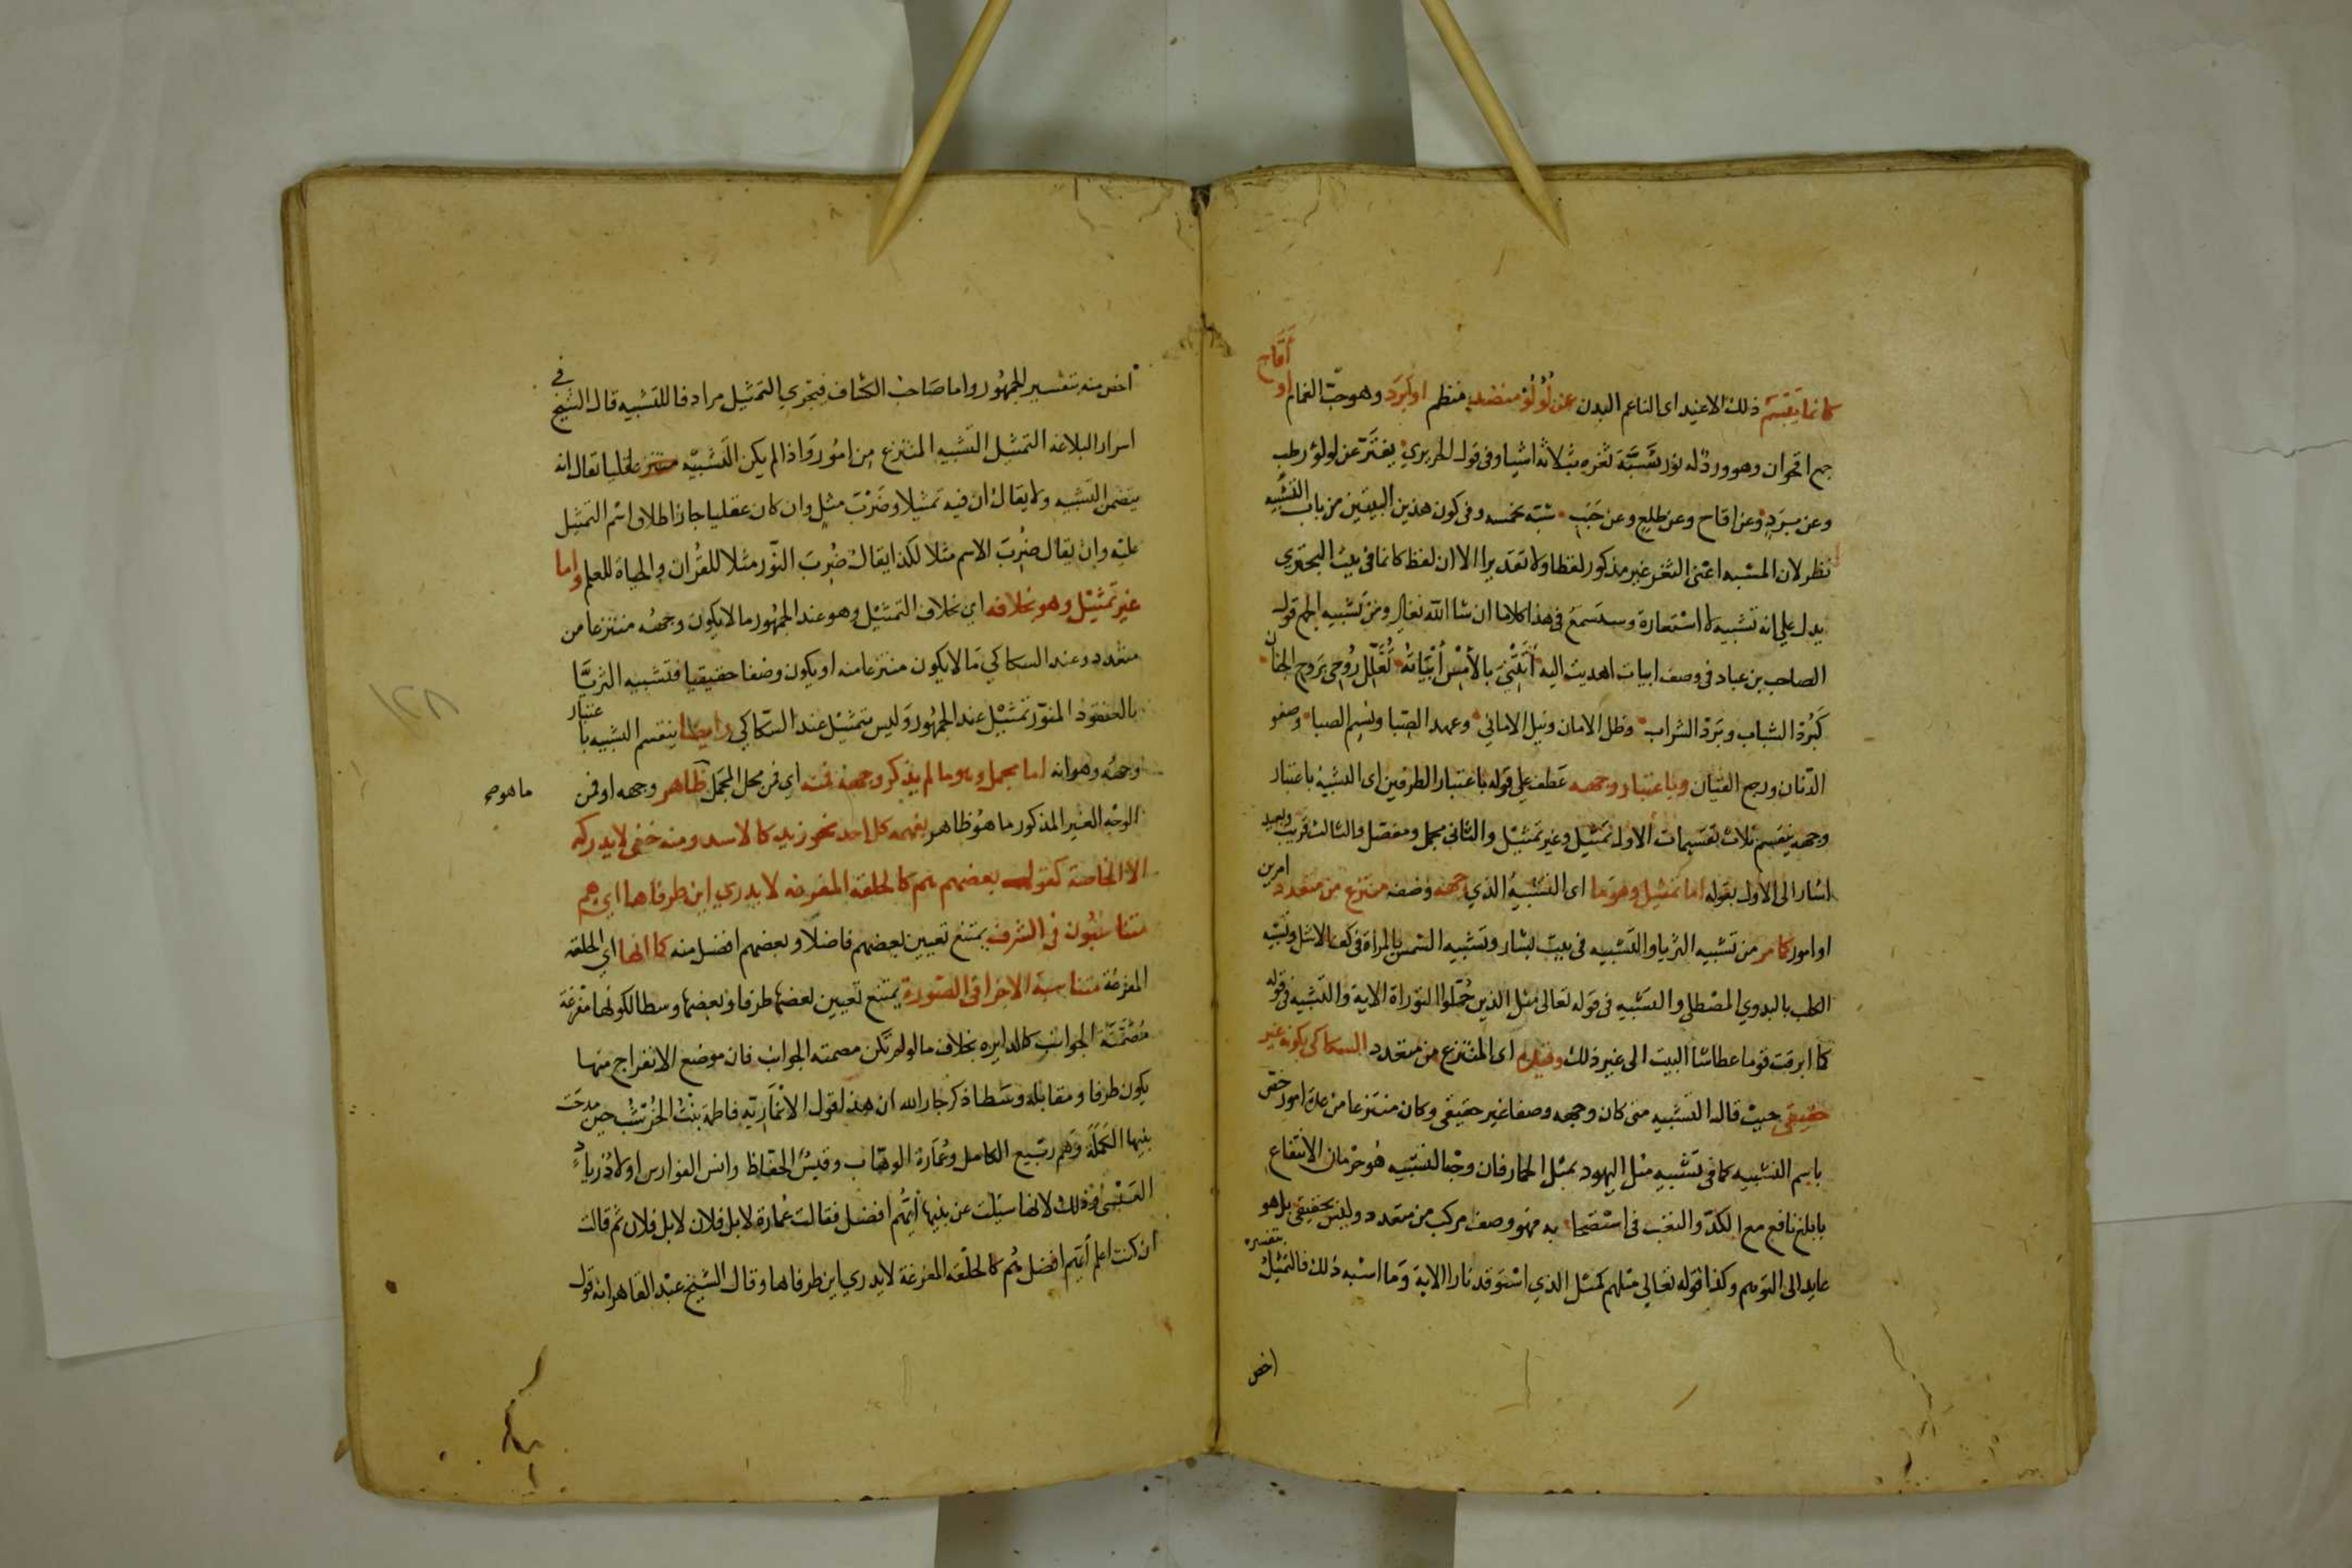 كانما يبسم ذلك الاغيد اى الناعم البدن عن لؤلؤ منضد منظم او برد وهو حب الغمام او اقاح
جمع اقحوان وهو ورد له نور يشبه ثغره بثلاثة اشيا وفى قول الحريري يفتر عن لولؤ رطب
وعن برد وعن اقاح وعن طلع وعن حبب شبه بخمسه وفى كون هذين البيتين من باب التشبيه
نظر لان المشبه اعنى الثغر غير مذكور لفظا ولا تقديرا الا ان لفظ كانما فى بيت البحترى
يدل على انه تشبيه لا استعارة وستسمع فى هذا كلاما ان شا الله تعالى ومن تشبيه الجمع قول
الصاحب بن عباد فى وصف ابيات اهديت اليه اتتنى بالامس ابياته تعلل روحى بروح الجنان
كبرد الشباب وبرد الشراب وظل الامان ونيل الاماني وعهد الصبا ونسيم الصبا وصفو
الدنان ورجع القيان وباعتبار وجهه عطف على قوله باعتبار الطرفين اى التشبيه باعتبار
وجهه ينقسم ثلاث تقسيمات الاول تمثيل وغير تمثيل والثانى مجمل ومفصل والثالث قريب وبعيد
اشار الى الاول بقوله اما تمثيل وهو ما اى التشبيه الذي وجهه وصف منتزع من متعدد امرين
او امور كما مر من تشبيه الثريا والتشبيه فى بيت بشار وتشبيه الشمس بالمراة فى كف الاشل وتشبيه
الكلب بالبدوي المصطلى والتشبيه فى قوله تعالى مثل الذين حملوا التوراة الاية والتشبيه فى قوله
كما ابرقت قوما عطاشا البيت الى غير ذلك وقيده اى المنتزع من متعدد السكاكى بكونه غير
حقيقى حيث قال التشبيه متى كان وجهه وصفا غير حقيقى وكان منتزعا من عدة امور خص
باسم التشبيه كما فى تشبيه مثل اليهود بمثل الحمار فان وجه التشبيه هو حرمان الانتفاع
بابلغ نافع مع الكد والتعب فى استصحابه فهو وصف مركب من متعدد وليس بحقيقى بل هو
عايد الى التوهم وكذا قوله تعالى مثلهم كمثل الذي استوقد نارا الاية وما اشبه ذلك فالتمثيل بتفسيره
اخص
اخص منه بتفسير الجمهور واما صاحب الكشاف فيجري التمثيل مرادفا للتشبيه قال الشيخ فى
اسرار البلاغه التمثيل التشبيه المنتزع من امور واذا لم يكن التشبيه عقليا تعال انه
يتضمن التشبيه ولا يقال ان فيه تمثيلا وضرب مثل وان كان عقليا جاز اطلاق اسم التمثيل
عليه وان يقال ضرب الاسم مثلا لكذا يقال ضرب النور مثلا للقران والحياة للعلم واما
غير تمثيل وهو بخلافه اي بخلاف التمثيل وهو عند الجمهور ما لا يكون وجهه منتزعا من
متعدد وعند السكاكي ما لا يكون منتزعا منه او يكون وصفا حقيقيا فتشبيه الثريا
بالعنقود المنور تمثيل عند الجمهور وليس بتمثيل عند السكاكي وايضا ينقسم التشبيه باعتبار
وجهه وهو انه اما مجمل وهو ما لم يذكر وجهه فمنه اي فمن المجمل ظاهر وجهه او فمن
ما هو صح
الوجه الغير المذكور ما هو ظاهر يفهمه كل احد نحو زيد كالاسد ومنه خفى لا يدركه
الا الخاصة كقول بعضهم هم كالحلقة المفرغه لا يدري اين طرفاها اي هم
متناسبون فى الشرف يمتنع تعيين بعضهم فاضلا وبعضهم افضل منه كما انها اي الحلقه
المفرغة متناسبة الاجزا فى الصورة يمتنع تعيين بعضها طرفا وبعضها وسطا لكونها مفرغة
مصمتة الجوانب كالدايره بخلاف ما لو لم تكن مصمته الجوانب فان موضع الانفراج منها
يكون طرفا ومقابله وسطا ذكر جار الله ان هذا لقول الانمارية فاطمة بنت الخرشب حين مدحت
بنيها الكملة وهم ربيع الكامل وعمارة الوهاب وقيس الحفاظ وانس الفوارس اولاد زياد
العبسى وذلك لانها سيلت عن بنيها ايهم افضل فقالت عمارة لا بل فلان لا بل فلان ثم قالت
ان كنت اعلم ايهم افضل هم كالحلقه المفرغة لا يدري اين طرفاها وقال الشيخ عبد القاهر انه قول